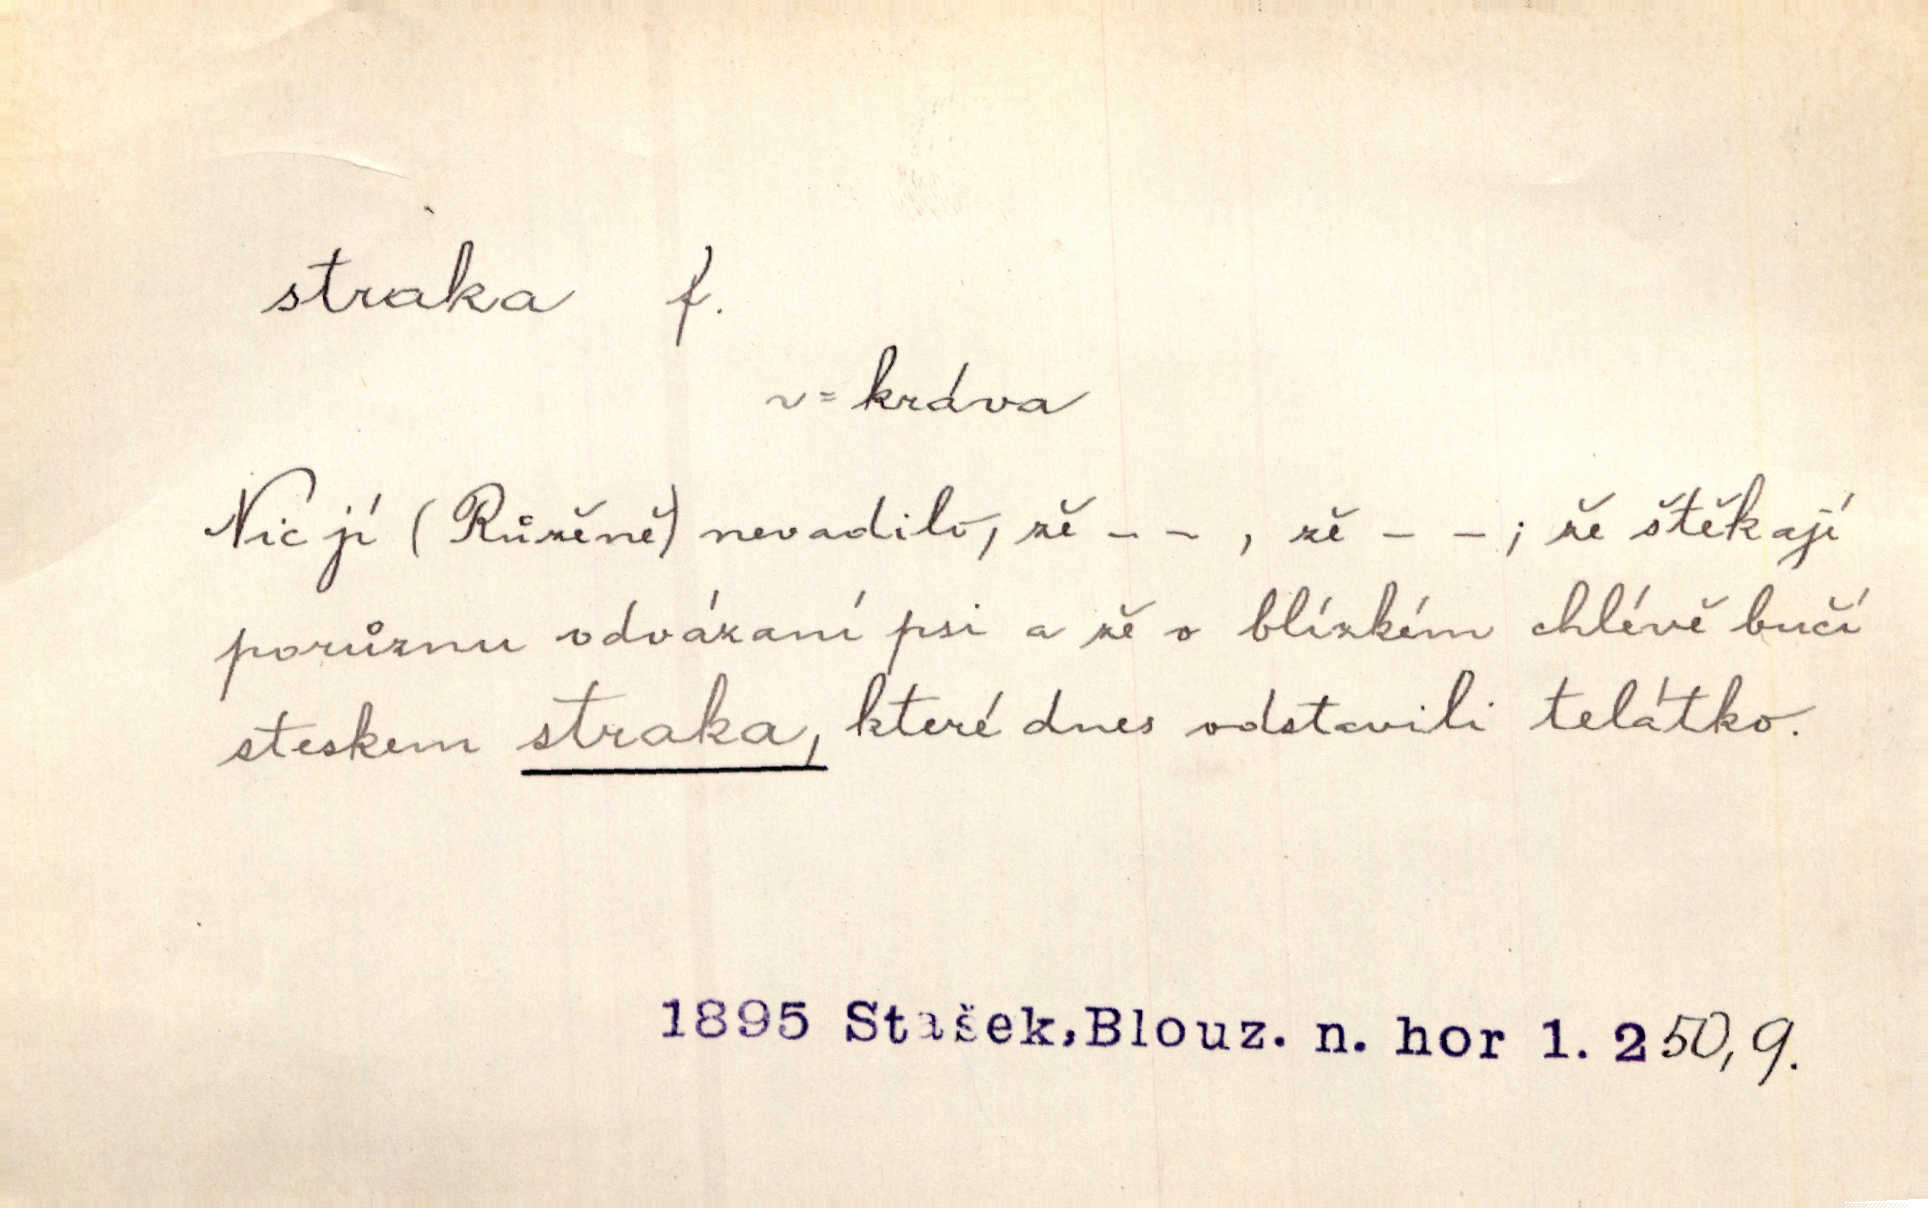 straka f.
v = kráva
Nic jí (Růženě) nevadilo, že – – , že – – ; že štěkají
porůznu odvázaní psi a že v blízkém chlévě bučí
steskem straka, které dnes odstavili telátko.
1895 Stašek, Blouz. n. hor 1. 250, 9.